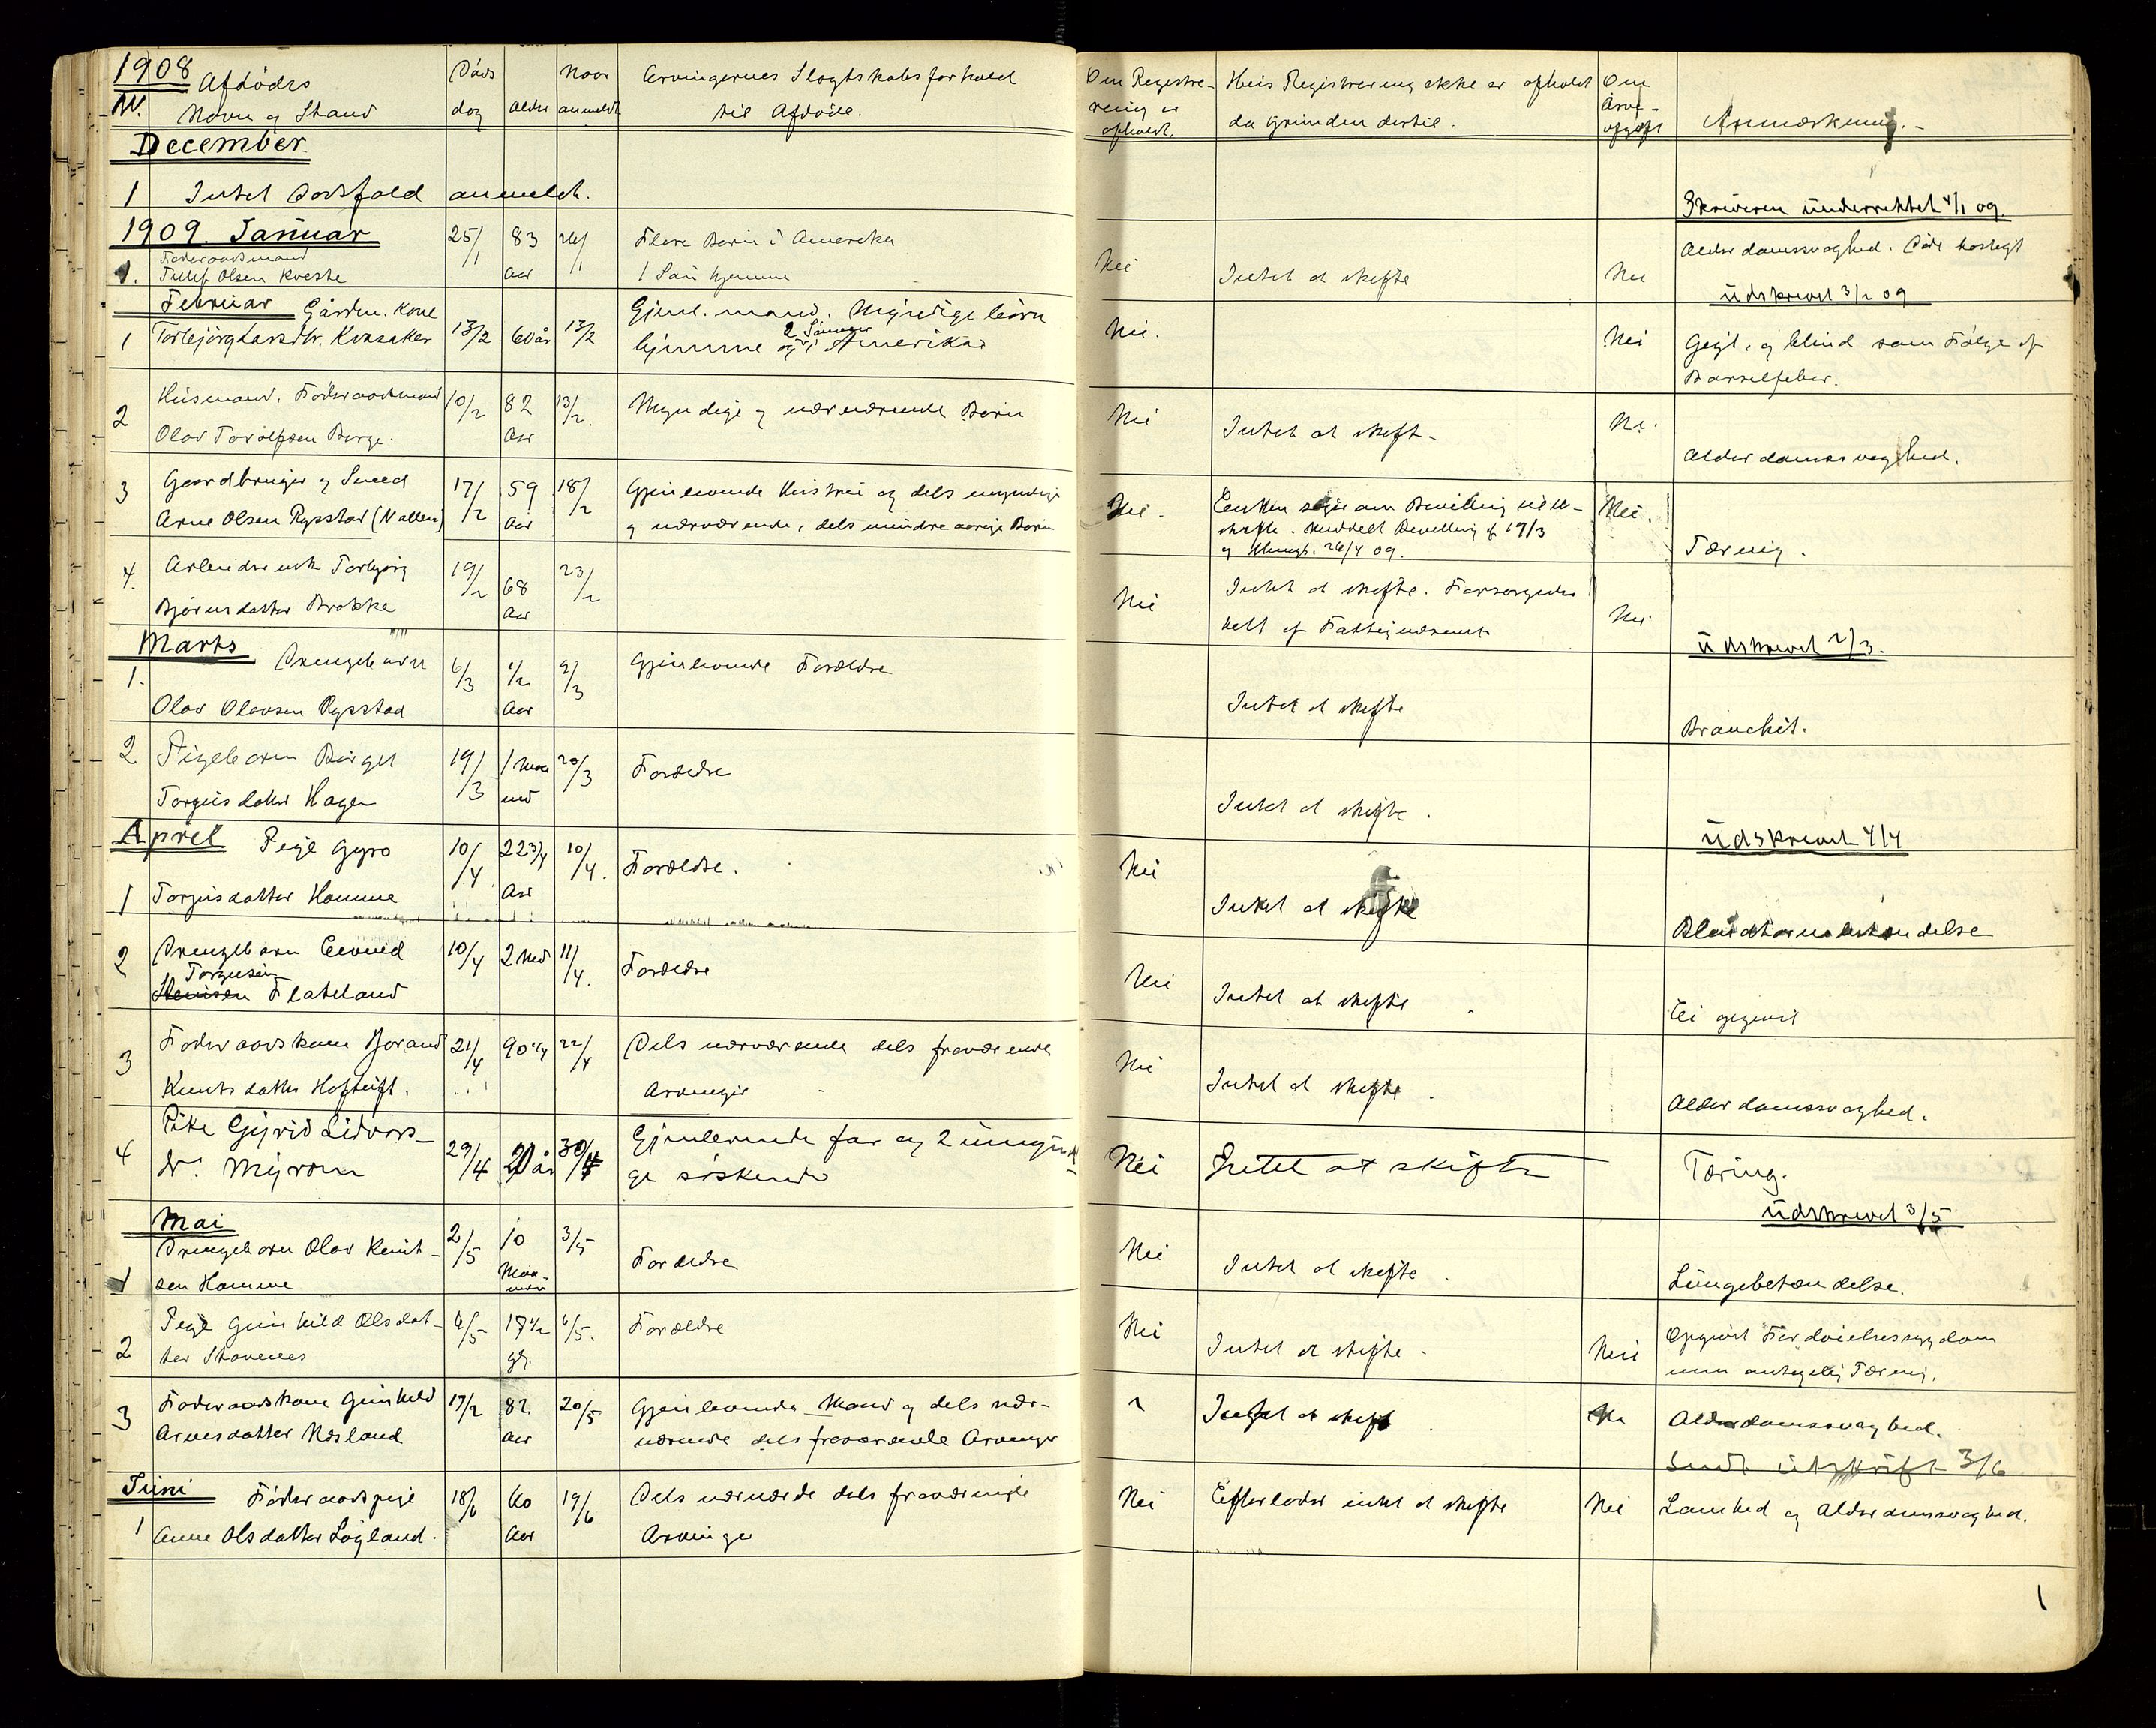 1908 Afdödes Döds Naar Arvingernes Slagtskabsforhold Om Registre- Hvis Registrering ikke er afholdt Om
Nr. Navn og Stand dag Alder anmeldt til Afdöde. ring er da Grunden dertil. Arve- Anmærkning.
afholdt. afgift
December
1 Intet Dødsfald anmeldt.
Skriveren underrettet 4/1 09.
1909. Januar 25/1 83 26/1 Flere Børn i Amerika Alderdomssvaghed. Døde hastigt
Føderaadsmand
1. Olsen Kveste Aar 1 Søn hjemme Nei Intet at skifte Nei
udskrevet 3/2 09
Februar Gårdm. Kone Gjenl. mand. Myndige börn
1 Torbjörg Larsdtr. Kvasaker 13/2 60 år 13/2 hjemme og 2 Sønner i Amerika Nei. Nei Gigt, og blind som Følge af
Barselfeber.
2 Husmand, Föderaadsmand 10/2 82 13/2. Myndige og nærværende Børn Nei Intet at skift- Nei.
Olav Torolfsen Berge. Aar Alderdomssvaghed.
3 Gaardbruger og Smed 17/2 59 18/2 Gjenlevende Hustru og dels myndige Nei. Enken søger om Bevilling til u- Nei.
Arne Olsen Rysstad (Nallen) Aar og nærværende, dels mindreaarige Børn skifte. Meddelt Bevilling af 17/3
og 26/4 09. Tæring.
4. Torbjørg 19/2 68 23/2 Nei Intet at skifte. Forsørgedes Nei
Bjørnsdatter Brokke Aar helt af Fattigvæsenet
udskrevet 2/3.
Marts Drengebarn 6/3 1/2 9/3 Gjenlevende Forældre
1. Olav Olavsen Rysstad Aar Intet at skifte Bronchit.
2 Pigebarn Birgit 19/3 1 Maa 20/3 Forældre
Torgusdatter Hagen ned Intet at skifte.
udskrevet 4/4
April Pige Gyro 10/4 22 3/4 10/4. Forældre. Nei
1 Torgusdatter Homme Aar Intet at skifte Blindtarmsbetændelse
2 Drengebarn Eivind 10/4 2 Md 11/4. Forældre Nei
Torgusen
Flateland Intet at skifte Ei opgivet
3 Föderaadskone Jorand 21/4 90 1/4 22/4 Dels nærværende dels fraværende Nei
Knutsdatter Hoftuft. Arvinger Intet at skifte. Alderdomssvaghed.
4 Pike Gyrid Lidvors- 29/4 20 år 30/4 Gjenlevende far og 2 umyndi- Nei Intet at skifte Tæring.
dr. Myrom ge söskende
udskrevet 3/5
Mai
1 Drengebarn Olav Knut- 2/5 10 3/5 Forældre Nei Intet at skifte.
sen Homme Maa-
neder Lungebetændelse.
2 Pige Gunhild Olsdat- 6/5 17 1/2 6/5. Forældre Nei Intet at skifte. Nei Opgivet Fordöielsessygdom
ter Stavenes men antagelig Tæring.
3 Föderaadskone Gunhild 17/2 82 20/5 Gjenlevende Mand og dels nær- Intet at skift Nei Alderdomssvaghed.
Arnesdatter Næsland Aar værende dels fraværende Arvinger
Sendt utskrift 3/6
Juni Föderaadspige 18/6 60 19/6 Dels nærværende dels fraværende Nei Efterlader intet at skifte Nei Lamhed og Alderdomssvaghed.
1 Anne Olsdatter Løgland. Aar Arvinge